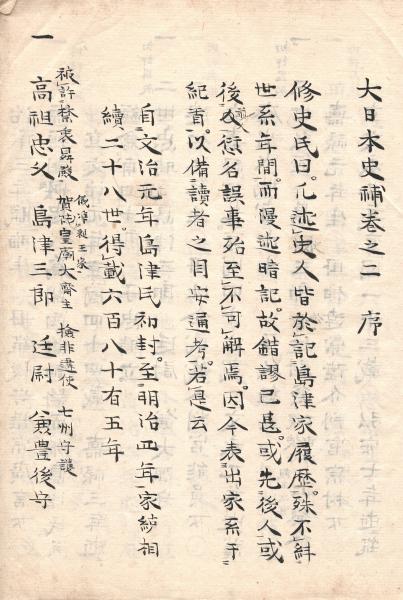 大日本史補巻之二 序
修史氏曰。凡述史人皆於記島津家履歴。殊不糾
世系年間。而漫述暗記。故錯謬已甚。或先後人或
後人愆名誤事殆至不可解焉。因今表出家系于
紀首。以備讀者之目安通考。若是云
自文治元年島津氏初封。至明治四年家統相
續二十八世。得載六百八十有五年
被許禁裏昇殿 賀詢皇廟大齋主 檢非違使 七州守護
一 高祖忠久 島津三郎 廷尉 兼豊後守